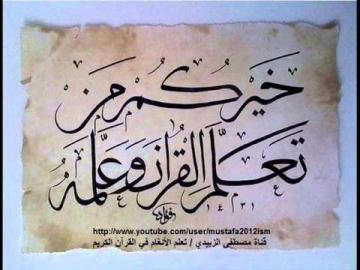 خَيْرُكُمْ مَنْ
تَعَلَّمَ القُرْآنَ وَعَلَّمَهُ
فؤاد ١٤٣١
http://www.youtube.com/user/mustafa2012ism
قناة مصطفى الزبيدي / تعلم الأنغام في القرآن الكريم